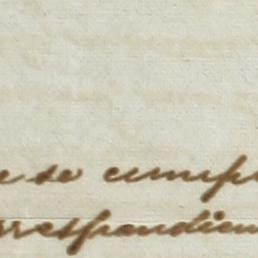 e se cumpl
rrespondien